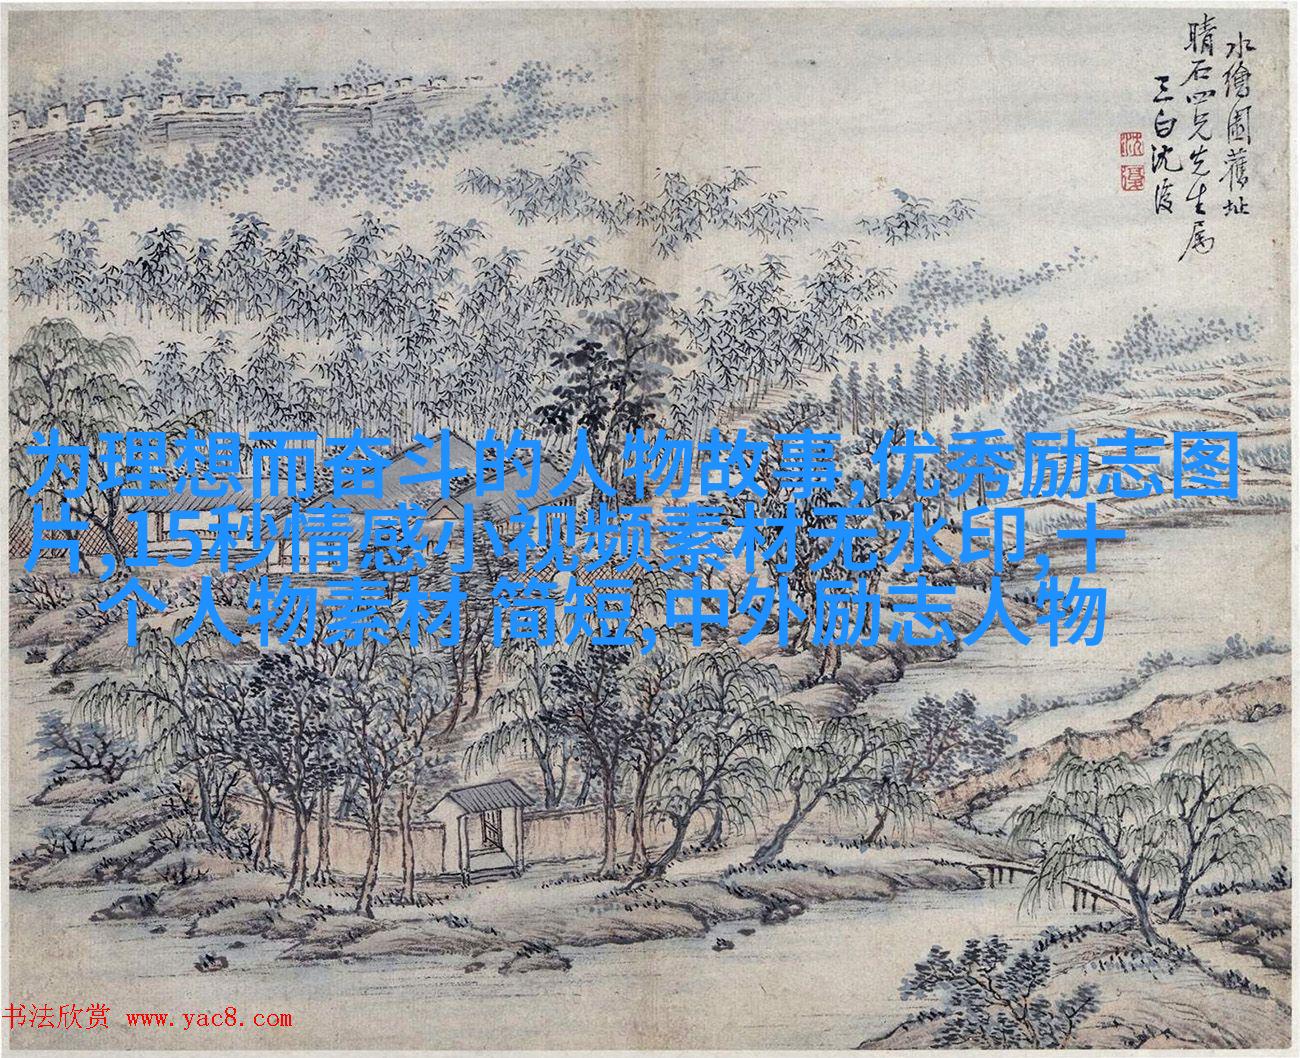 水繪園舊址
晴石四兄先生属
三白沈复
沈
复
为理想而奋斗的人物故事,优秀励志图
片,15秒情感小视频素材无水印,十
个人物素材 简短,中外励志人物
书法欣赏 www.yac8.com